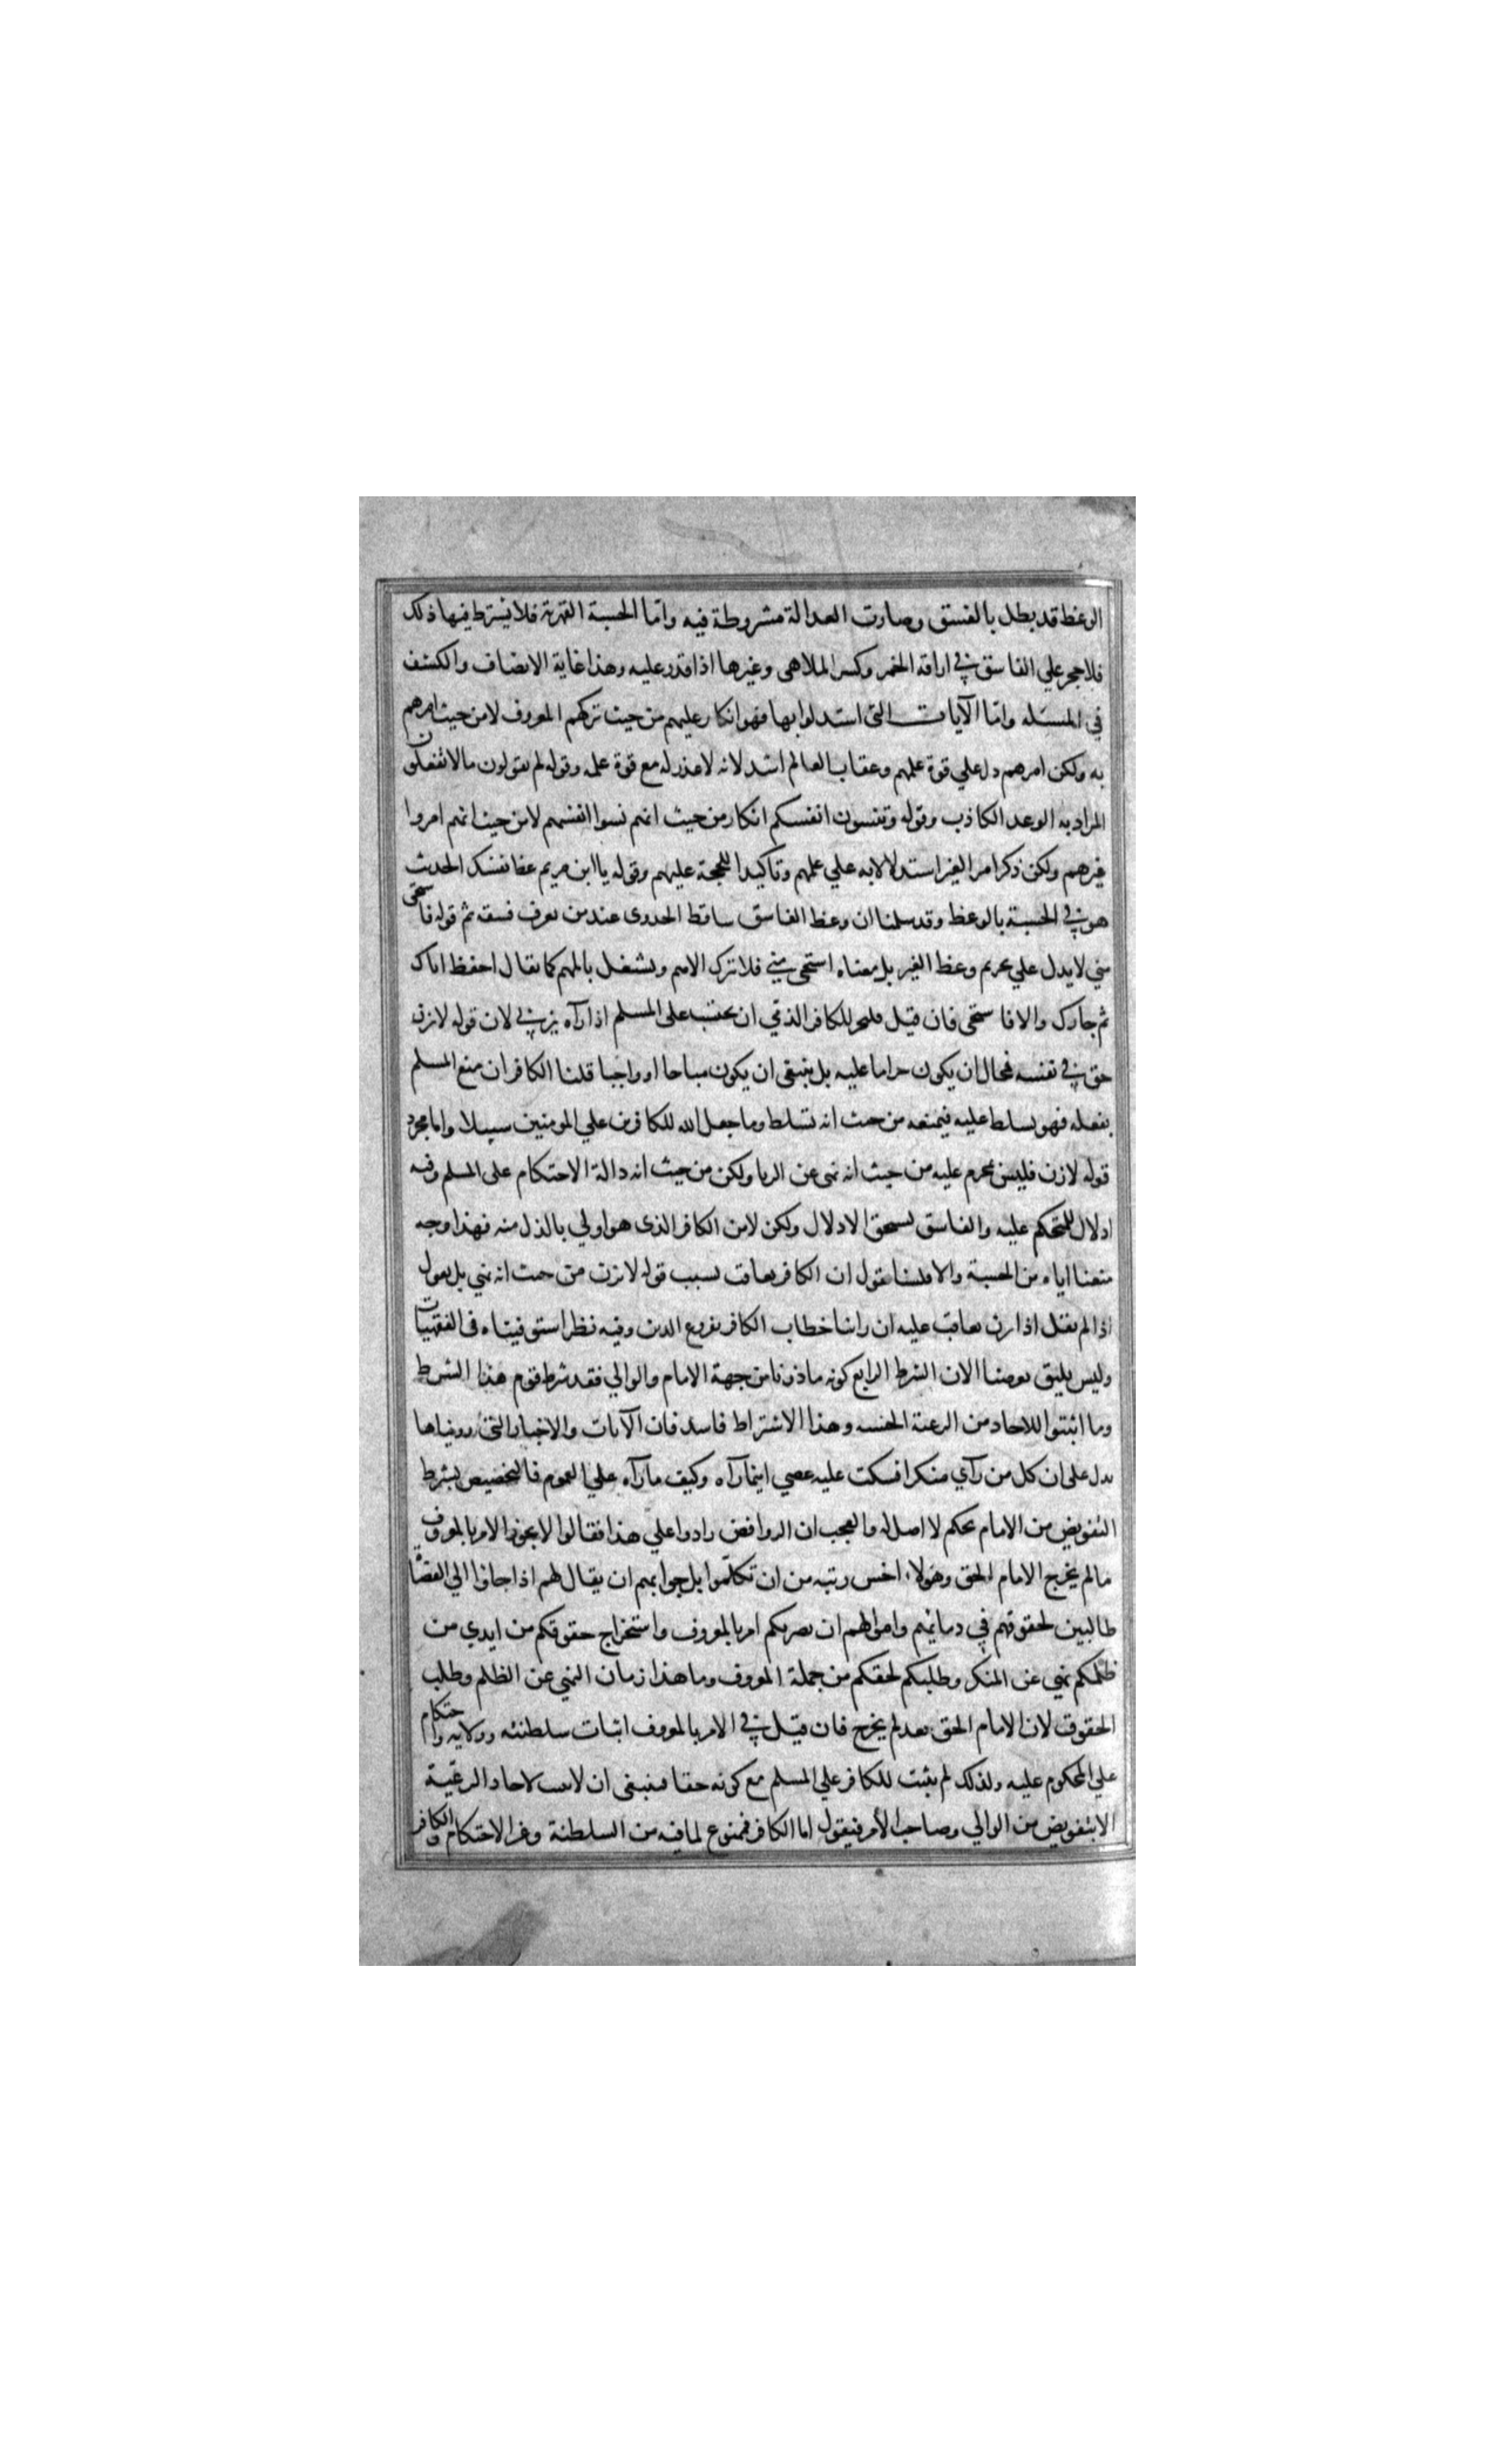 الوعظ قد بطل بالفسق وصارت العدالة مشروطة فيه واما الحسبة القهرية فلا يشترط فيها ذلك
فلا حجر علي الفاسق في اراقة الخمر وكسر الملاهي وغيرها اذا قدر عليه وهذا غاية الانصاف والكشف
في المسئله واما الآيات التي استدلوا بها فهو انكار عليهم من حيث تركهم المعروف لا من حيث امرهم
به ولكن امرهم دل علي قوة علمهم وعقاب العالم اشد لانه لا عذر له مع قوة علمه وقوله لم تقولون مالا تفعلون
المراد به الوعد الكاذب وقوله وتنسون انفسكم انكار من حيث انهم نسوا انفسهم لا من حيث انهم امروا
غيرهم ولكن ذكر امر الغير استدلالا به علي علمهم وتاكيدا للحجة عليهم وقوله يا ابن مريم عظ نفسك الحديث
هو في الحسبة بالوعظ وقد سلمنا ان وعظ الفاسق ساقط الجدوى عند من يعرف فسقه ثم قوله فاستحي
مني لا يدل علي تحريم وعظ الغير بل معناه استحي مني فلا تترك الاهم وتشتغل بالمهم كما يقال احفظ اباك
ثم جارك والا فاستحي فان قيل فليجز للكافر الذمي ان يحتسب على المسلم اذا رآه يزني لان قوله لا تزن
حق في نفسه فمحال ان يكون حراما عليه بل ينبغي ان يكون مباحا او واجبا قلنا الكافر ان منع المسلم
بفعله فهو تسلط عليه فيمنعه من حيث انه تسلط وما جعل الله للكافرين علي المومنين سبيلا واما مجرد
قوله لا تزن فليس بمحرم عليه من حيث انه نهى عن الزنا ولكن من حيث انه دالة الاحتكام على المسلم وفيه
اذلال للمتحكم عليه والفاسق يستحق الاذلال ولكن لا من الكافر الذي هو اولي بالذل منه فهذا وجه
منعنا اياه من الحسبة والا فلسنا نقول ان الكافر يعاقب بسبب قوله لا تزن من حيث انه نهي بل نقول
اذا لم يقل لا تزن يعاقب عليه ان راينا خطاب الكافر بفروع الدين وفيه نظر استوفيناه في الفقهيات
وليس يليق بغرضنا الان الشرط الرابع كونه ماذونا من جهة الامام والوالي فقد شرط قوم هذا الشرط
وما اثبتوا للاحاد من الرعية الحسبه وهذا الاشتراط فاسد فان الآيات والاخبار التي رويناها
تدل على ان كل من رآي منكرا فسكت عليه عصي اينما رآه وكيف ما رآه علي العموم فالتخصيص بشرط
التفويض من الامام تحكم لا اصل له والعجب ان الروافض زادوا علي هذا فقالوا لا يجوز الامر بالمعروف
مالم يخرج الامام الحق وهولاء اخس رتبه من ان تكلموا بل جوابهم ان يقال لهم اذا جاؤا الي القضاء
طالبين لحقوقهم في دمائهم واموالهم ان نصرتكم امر بالمعروف واستخراج حقوقكم من ايدي من
ظلمكم نهي عن المنكر وطلبكم لحقكم من جملة المعروف وما هذا زمان النهي عن الظلم وطلب
الحقوق لان الامام الحق بعد لم يخرج فان قيل في الامر بالمعروف اثبات سلطنة وولاية واحتكام
علي المحكوم عليه ولذلك لم يثبت للكافر علي المسلم مع كونه حقا فينبغي ان لا يثبت لاحاد الرعية
الا بتفويض من الوالي وصاحب الأمر فيقول اما الكافر فممنوع لما فيه من السلطنة وعز الاحتكام والكافر